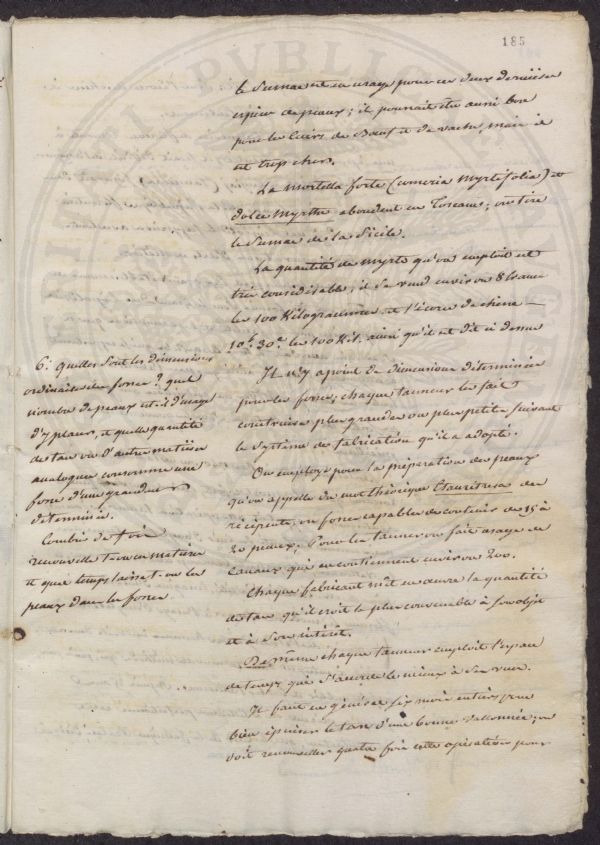 185
le Sumac est en usage pour ces deux dernieres
espèces de peaux; il pourrait être aussi bon
pour les Cuirs de Bœuf et de vache, mais il
est trop cher.
La Mortella forte (comeria Myrtifolia) et
dolce Myrthe abondent en Toscane; on tire
le Sumac de la Sicile.
La quantité de Myrte qu'on emploit est
très considérable; il se vend environ 8 francs
les 100 Kilogrammes et l'écorce de chêne —
10f. 30c. les 100 Kil. ainsi qu'il est dit ci dessus
6.° Quelles sont les dimensions
ordinaires des fosses? quel
nombre de peaux est-il d'usage
d'y placer, et quelle quantité
de tan ou d'autres matières
analogues consomme une
fosse d'une grandeur
déterminée.
Combien de fois
renouvelle-t-on ces matières
et quel temps laisse-t-on les
peaux dans les fosses
Il n'y a point de dimensions déterminées
pour les fosses; chaque tanneur les fait
construire plus grandes ou plus petites suivant
le système de fabrication qu'il a adopté.
On employe pour la préparation des peaux
qu'on appelle du mot
récipients, ou fosses capables de contenir de 15 à
20 peaux; Pour les tanner on fait usage de
Canaux qui en contiennent environ 200.
Chaque fabricant met en œuvre la quantité
de tan qu'il croit le plus convenable à son objet
et à son intérêt.
De même chaque tanneur emploit l'espace
de temps qui s'accorde le mieux à ses vues.
Il faut en général six mois entiers pour
bien épuiser le tan d'une bonne vallonnée; on
doit renouveller quatre fois cette opération pour